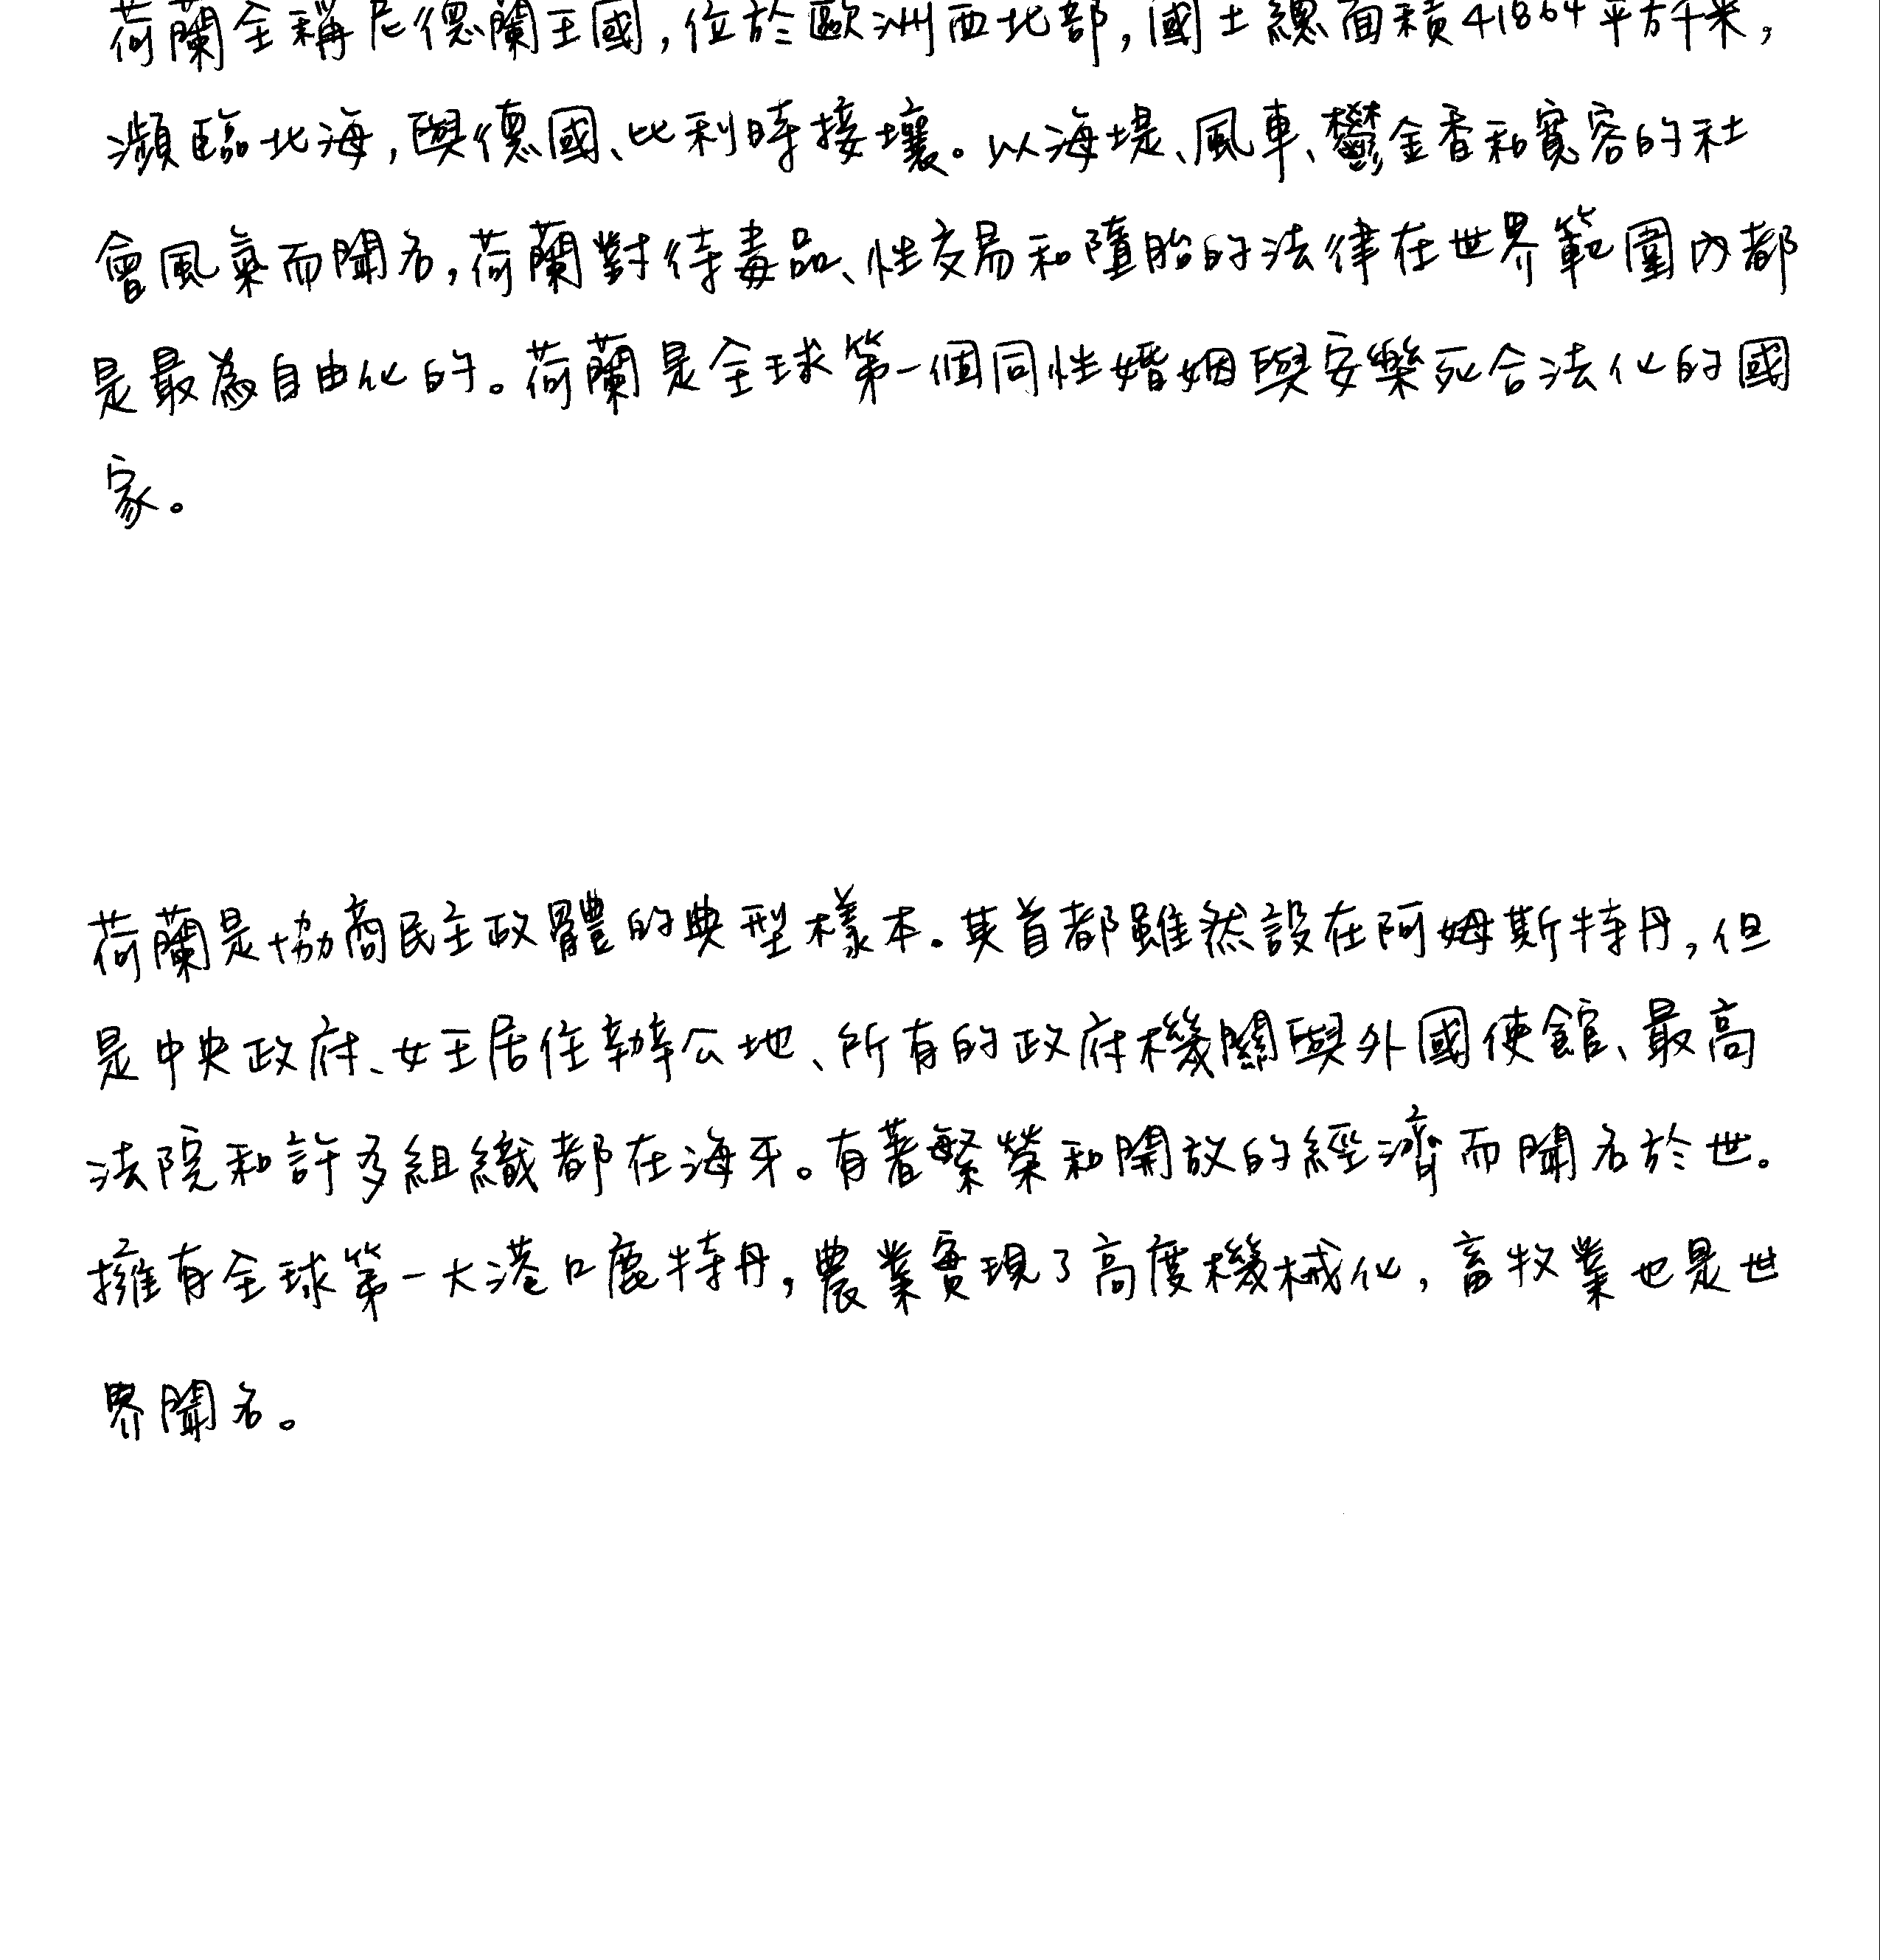 荷蘭全稱尼德蘭王國,位於歐洲西北部,國土總面積41864平方千米,
瀕臨北海,與德國、比利時接壤。以海堤、風車、鬱金香和寬容的社
會風氣而聞名,荷蘭對待毒品、性交易和墮胎的法律在世界範圍內都
是最為自由化的。荷蘭是全球第一個同性婚姻與安樂死合法化的國
家。
荷蘭是協商民主政體的典型樣本。其首都雖然設在阿姆斯特丹,但
是中央政府、女王居住辦公地、所有的政府機關與外國使館、最高
法院和許多組織都在海牙。有著繁榮和開放的經濟而聞名於世。
擁有全球第一大港口鹿特丹,農業實現了高度機械化,畜牧業也是世
界聞名。